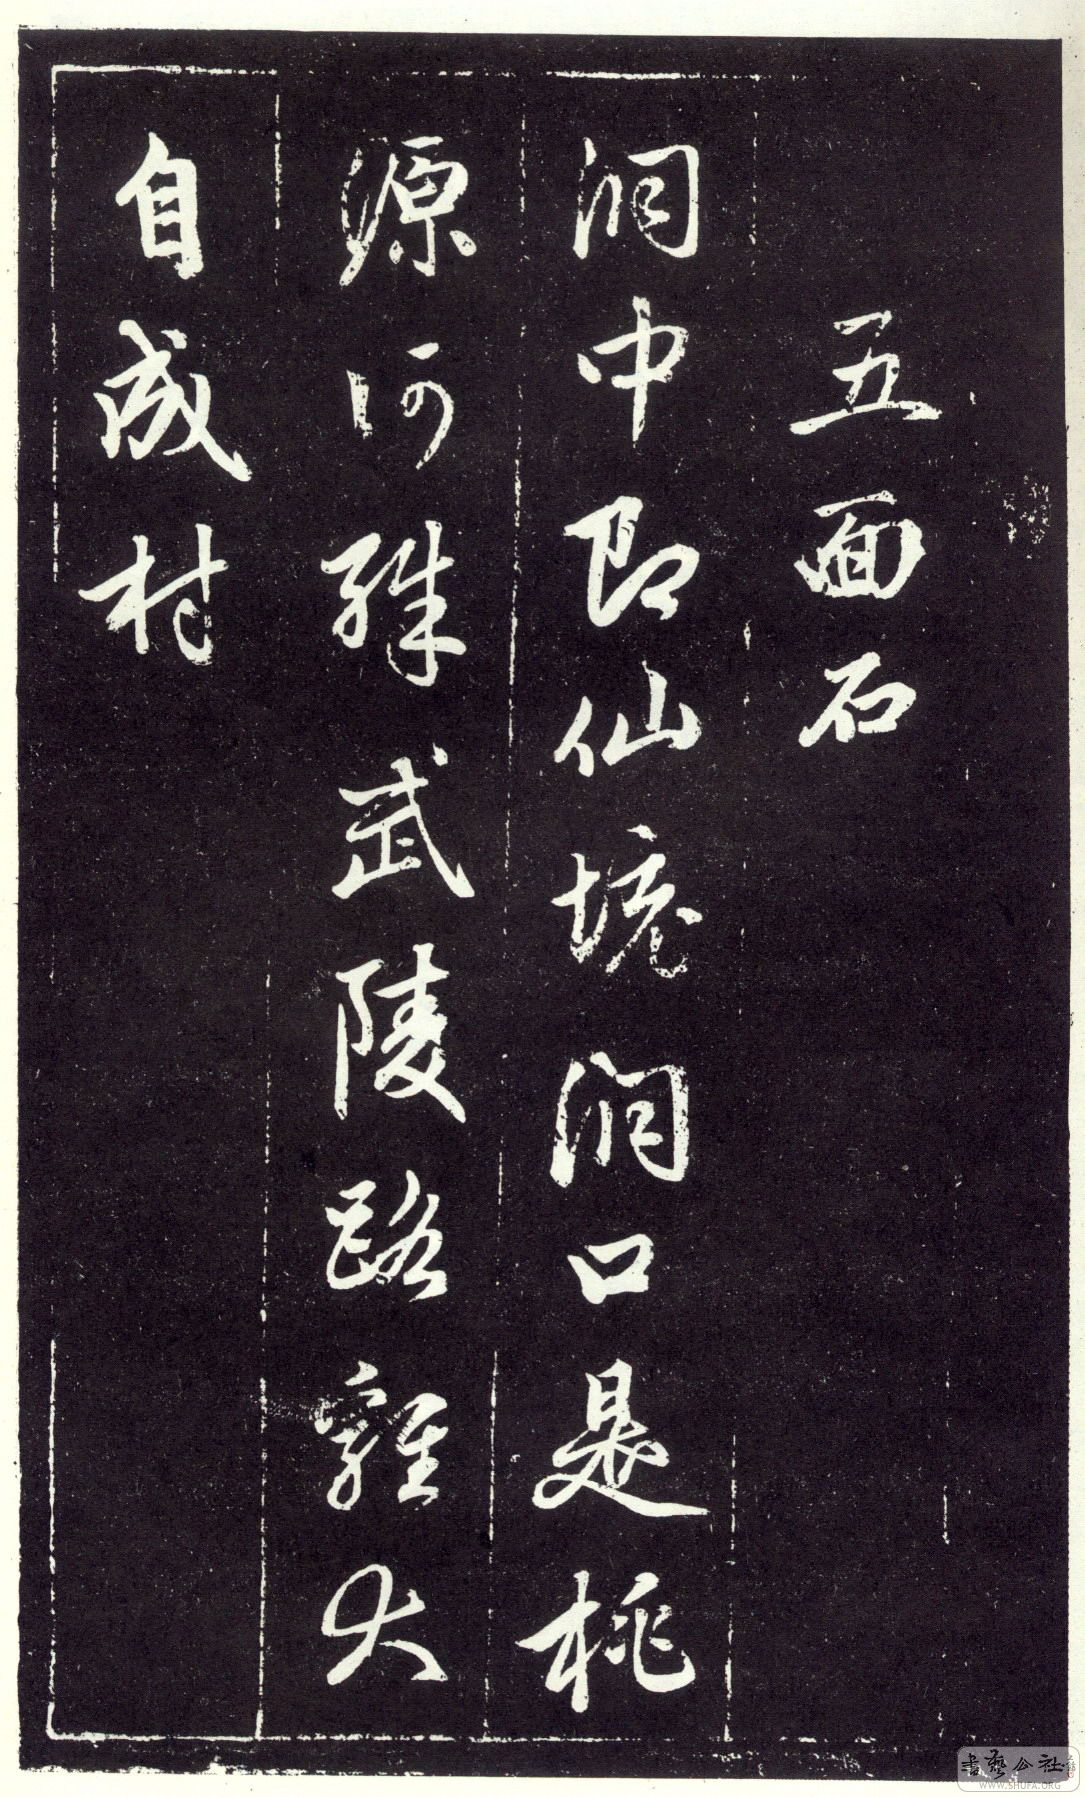 五面石
洞中即仙境洞口是桃
源何殊武陵路雞犬
自成村
書藝公社
WWW.SHUFA.ORG